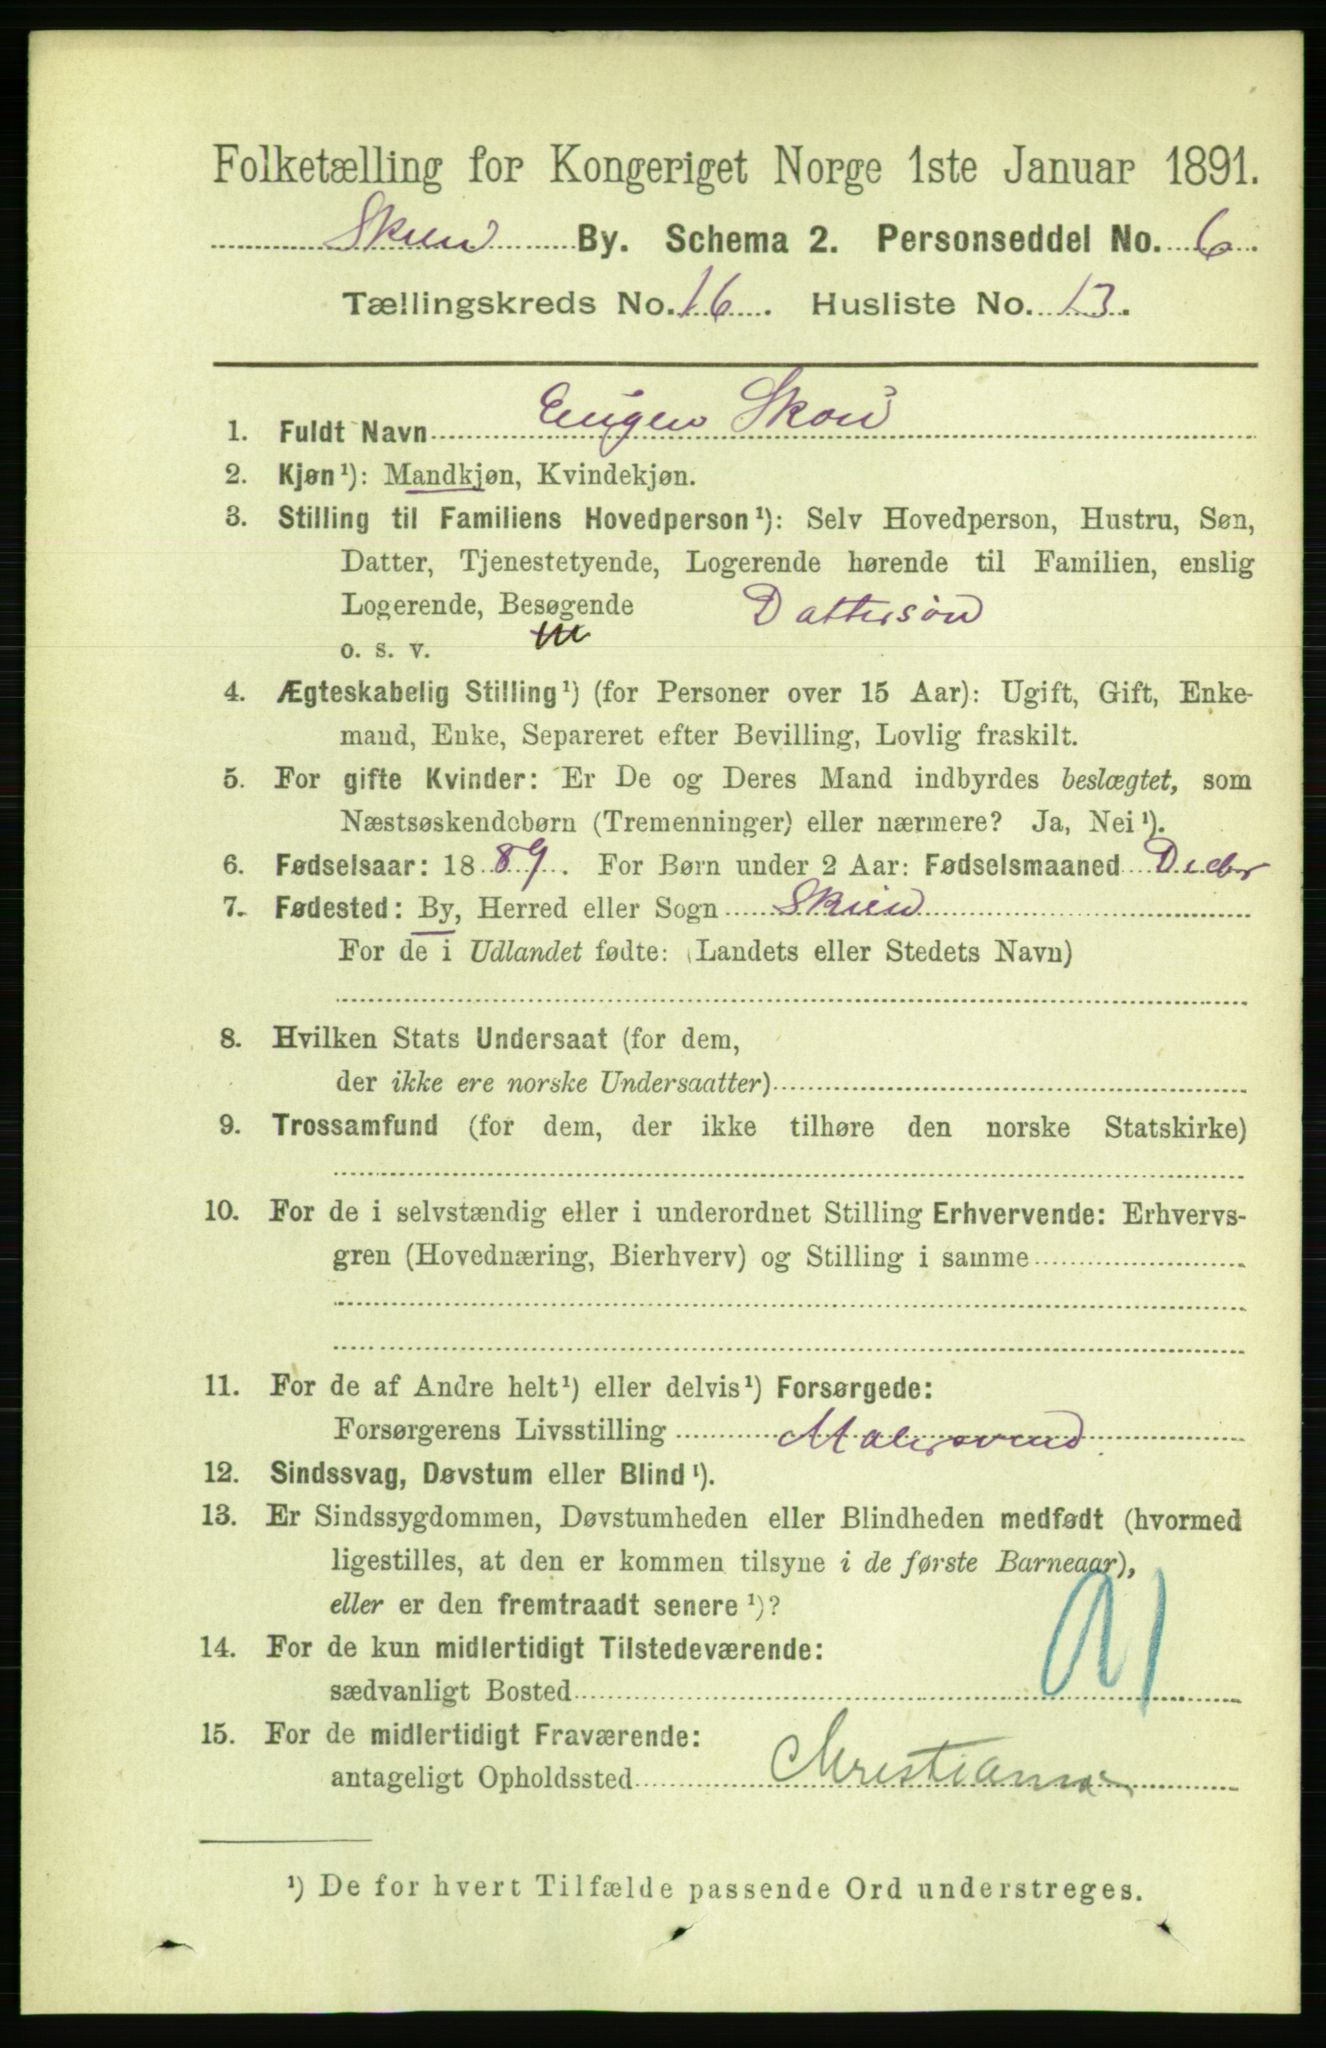 Folketælling for Kongeriget Norge 1ste Januar 1891.
Skien By. Schema 2. Personseddel No. 6.
Tællingskreds No. 16. Husliste No. 13.
1. Fuldt Navn Eugen Skou
2. Kjøn¹): Mandkjøn, Kvindekjøn.
3. Stilling til Familiens Hovedperson¹): Selv Hovedperson, Hustru, Søn,
Datter, Tjenestetyende, Logerende hørende til Familien, enslig
Logerende, Besøgende Dattersøn
o. s. v.
4. Ægteskabelig Stilling¹) (for Personer over 15 Aar): Ugift, Gift, Enke-
mand, Enke, Separeret efter Bevilling, Lovlig fraskilt.
5. For gifte Kvinder: Er De og Deres Mand indbyrdes beslægtet, som
Næstsøskendebørn (Tremenninger) eller nærmere? Ja, Nei¹).
6. Fødselsaar: 1889. For Børn under 2 Aar: Fødselsmaaned Decbr
7. Fødested: By, Herred eller Sogn Skien
For de i Udlandet fødte: (Landets eller Stedets Navn)
8. Hvilken Stats Undersaat (for dem,
der ikke ere norske Undersaatter)
9. Trossamfund (for dem, der ikke tilhøre den norske Statskirke)
10. For de i selvstændig eller i underordnet Stilling Erhvervende: Erhvervs-
gren (Hovednæring, Bierhverv) og Stilling i samme
11. For de af Andre helt¹) eller delvis¹) Forsørgede:
Forsørgerens Livsstilling Malersvend
12. Sindssvag, Døvstum eller Blind¹).
13. Er Sindssygdommen, Døvstumheden eller Blindheden medfødt (hvormed
ligestilles, at den er kommen tilsyne i de første Barneaar),
eller er den fremtraadt senere¹)?
14. For de kun midlertidigt Tilstedeværende:
sædvanligt Bosted
15. For de midlertidigt Fraværende:
antageligt Opholdssted Christiania
¹) De for hvert Tilfælde passende Ord understreges.